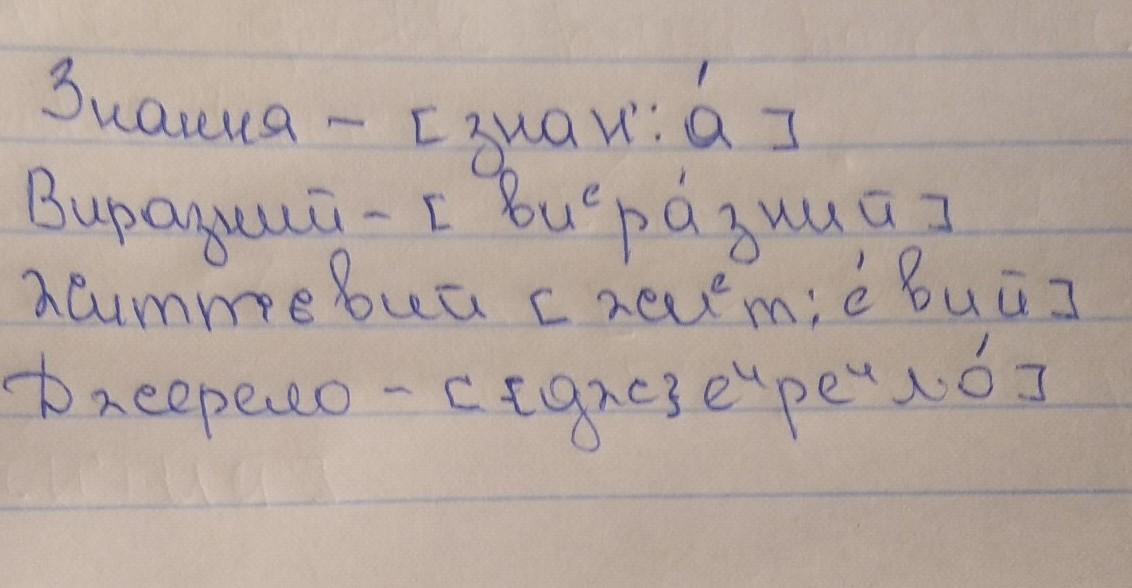 Знання - [знан':á]
Виразний - [виᵉрáзний]
Життєвий [жиᵉт:éвий]
Джерело - [{дж}еᶸреᶸлó]